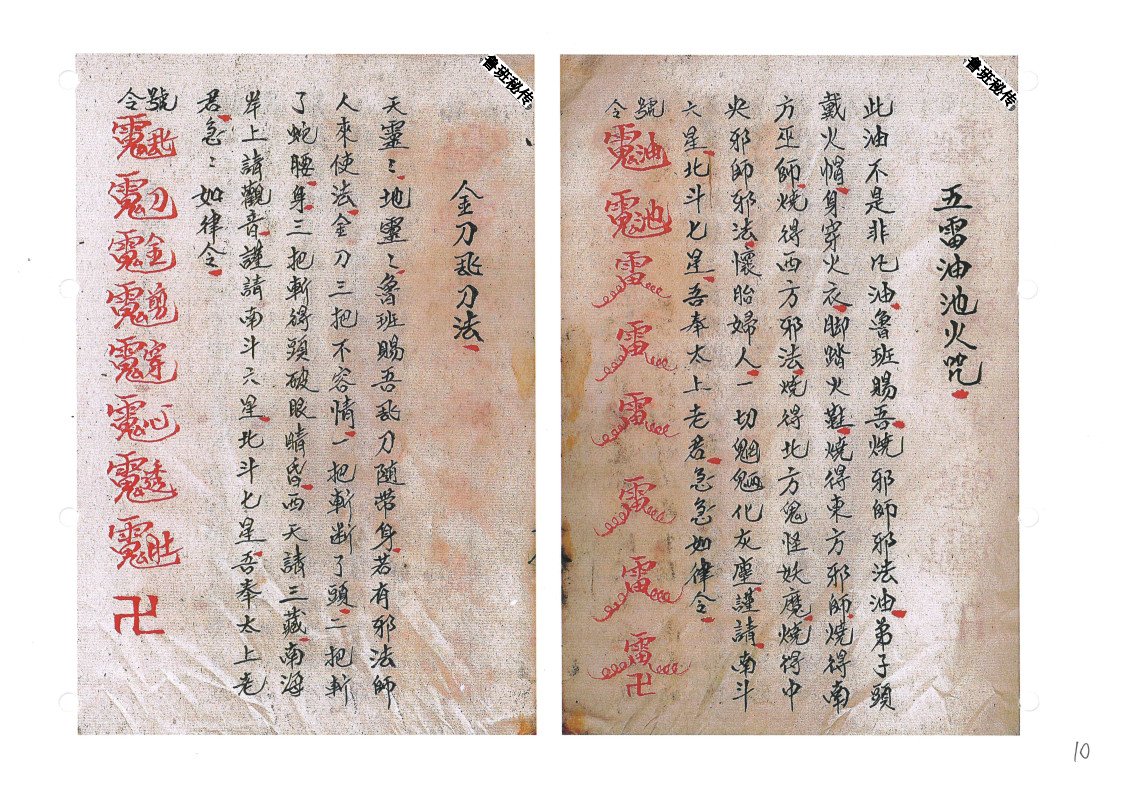 魯班秘传
五雷油池火咒
此油不是非凡油魯班賜吾燒邪師邪法油弟子頭
戴火帽身穿火衣脚踏火鞋燒得東方邪師燒得南
方巫師燒得西方邪法燒得北方鬼怪妖魔燒得中
央邪師邪法懷胎婦人一切魍魎化灰塵謹請南斗
六星北斗七星吾奉太上老君急急如律令
號令
油
池
雷
雷
雷
雷
雷
雷
卍
魯班秘传
金刀飛刀法
天靈〻地靈〻魯班賜吾飛刀隨带身若有邪法師
人來使法金刀三把不容情一把斬断了頭二把斬
了蛇腰身三把斬得頭破眼睛昏西天請三藏南海
岸上請觀音謹請南斗六星北斗七星吾奉太上老
君急〻如律令
號令
飛
刀
金
剪
穿
心
透
肚
卍
10